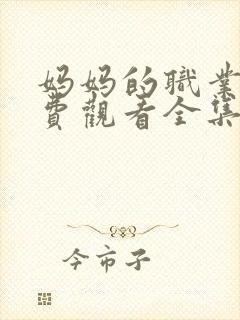 妈妈的職業
費觀看全集
今市子